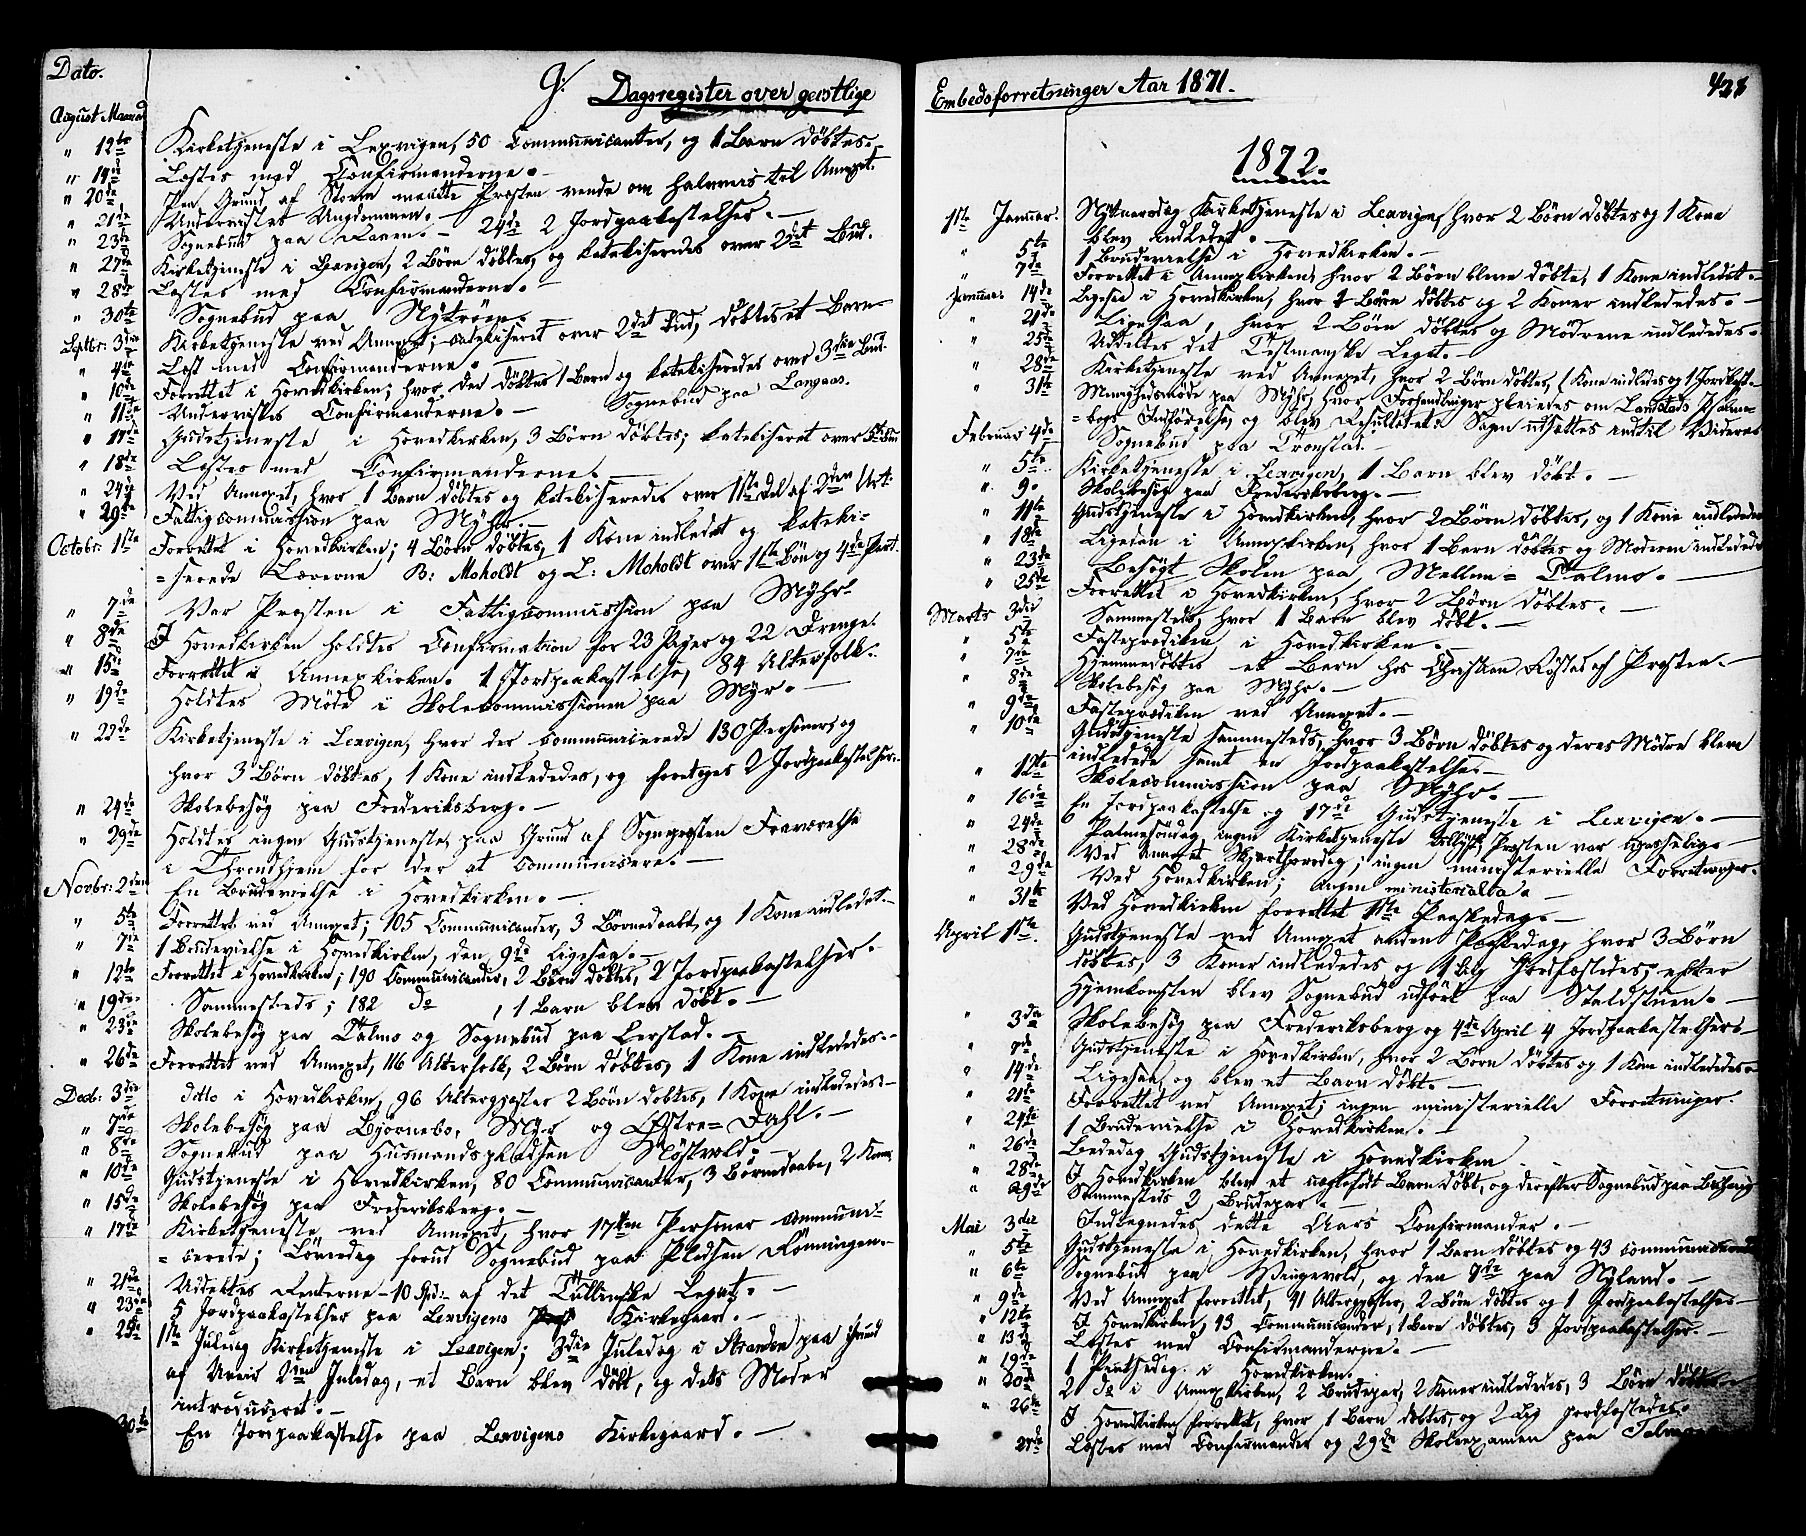 Dato.
G: Dagsregister over geistlige
August Maaned
" 12te Kirketjeneste i Lexvigen, 50 Communicanter, og 1 Barn døbtes.
" 14de Læstes med Confirmanderne.
" 20de Paa Grund af Storm maatte Præsten vende om halvveis til Annexet.
" 21de Undervistes Ungdommen. — 24de 2 Jordpaakastelser.
" 23de Sognebud paa
" 27de Kirketjeneste i Lexvigen, 2 Børn døbtes, og katekiseredes over 2det Bud.
" 28de Læstes med Confirmanderne.
" 30te Sognebud paa
Septbr: 3die Kirketjeneste ved Annexet; katekiseret over 2det Bud, døbtes et Barn
" 4de Læst med Confirmanderne.
" 10de Forrettet i Hovedkirken; hvor der døbtes 1 Barn og katekiseredes over 3die Bud.
" 11te Undervistes Confirmanderne. — Sognebud paa Langaas.
" 17de Gudstjeneste i Hovedkirken, 3 Børn døbtes; katekiseret over
" 18de Læstes med Confirmanderne.
" 24de Ved Annexet, hvor 1 Barn døbtes og katekiseredes over 1ste Del af 2den Art:
" 29de Fattigcommission paa Myhr.
Octobr: 1ste Forrettet i Hovedkirken; 4 Børn døbtes, 1 Kone indledet og kateki-
=serede Lærerne B: Moholdt og L: Moholdt over 1ste Bøn og 4de Part.
" 7de Var Præsten i Fattigcommission paa Myhr.
" 8de I Hovedkirken holdtes Confirmation for 23 Piger og 22 Drenge.
" 15de Forrettet i Annexkirken. 1 Jordpaakastelse, 84 Alterfolk.
" 19de Holdtes Møde i Skolecommissionen paa Myr.
" 22de Kirketjeneste i Lexvigen, hvor der communicerede 130 Personer og
hvor 3 Børn døbtes, 1 Kone indlededes, og foretoges 2 Jordpaakastelser.
" 24de Skolebesøg paa Frederiksberg.
" 29de Holdtes ingen Gudstjeneste paa Grund af Sognepræsten Fraværelse
i Throndhjem for der at communicere.
Novbr: 2den En Brudevielse i Hovedkirken.
" 5te Forrettet ved Annexet; 105 Communicander, 3 Børnedaabe, og 1 Kone indledet.
" 7de 1 Brudevielse i Hovedkirken, den 9de ligesaa.
" 12te Forrettet i Hovedkirken; 190 Communicander, 2 Børn døbtes, 2 Jordpaakastelser.
" 19de Sammesteds; 182 do, 1 Barn blev døbt.
" 23de Skolebesøg paa Talmo og Sognebud paa Lerstad.
" 26de Forrettet ved Annexet, 116 Alterfolk, 2 Børn døbtes, 1 Kone indlededes.
Decb: 3die ditto i Hovedkirken, 96 Altergjæster, 2 Børn døbtes, 1 Kone indlededes.
" 7de Skolebesøg paa Bjørnebo, Myr og Østre=Dahl.
" 8de Sognebud paa Husmandspladsen
" 10de Gudstjeneste i Hovedkirken, 80 Communicanter, 3 Børnedaabe, 2 Koner
" 15de Skolebesøg paa Frederiksberg.
" 17de Kirketjeneste ved Annexet, hvor 17ten Personer communi-
=cerede; Løverdag forud Sognebud paa Pladsen Rønningen.
" 21de Uddeltes Renterne 10 Spd: af det Tullinske Legat.
" 23de 5 Jordpaakastelser paa Lexvigens Kirkegaard.
" 25de 1ste Juledag Kirketjeneste i Lexvigen; 3die Juledag i Stranden paa Grund
af Uveir 2den Juledag, et Barn blev døbt, og dets Moder
introduceret.
30te En Jordpaakastelse paa Lexvigens Kirkegaard.
Embedsforretninger Aar 1871.
428
1872.
1ste Januar. Nytaarsdag Kirketjeneste i Lexvigen, hvor 2 Børn døbtes og 1 Kone
blev indledet.
" 5te 1 Brudevielse i Hovedkirken.
" 7de Forrettet i Annexkirken, hvor 2 Børn bleve døbte, 1 Kone indledet.
Januar. 14de Ligesaa i Hovedkirken, hvor Børn døbtes og 2 Koner indlededes.
" 21de Ligesaa, hvor 2 Børn døbtes og Mødrene indlededes.
" 25de Uddeltes det Testmanske Legat.
" 28de Kirketjeneste ved Annexet, hvor 2 Børn døbtes, 1 Kone indledes og 1 Jordkast.
" 31te Menighedsmøde paa Myhr, hvor Forhandlinger pleiedes om Landstads Psalme-
=bogs Indførelse, og blev Resultatet: Sagen udsættes indtil Videre.
Februar 4de Sognebud paa Tronstad.
" 5te Kirketjeneste i Lexvigen, 1 Barn blev døbt.
" 9. Skolebesøg paa Frederiksberg.
" 11te Gudstjeneste i Hovedkirken, hvor 2 Børn døbtes, og 1 Kone indlededes
" 18de Ligedan i Annexkirken, hvor 1 Barn døbtes og Moderen indlededes
" 23de Besøgt Skolen paa Mellem=Talmo.
" 25de Forrettet i Hovedkirken, hvor 2 Børn døbtes.
Marts 3die Sammesteds, hvor 1 Barn blev døbt.
" 5te Fasteprædiken i Hovedkirken.
" 7de Hjemmedøbtes et Barn hos Christian Røstad af Præsten.
" 8de Skolebesøg paa Myhr.
" 9de Fasteprædiken ved Annexet.
" 10de Gudstjeneste sammesteds, hvor 3 Børn døbtes og deres Mødre bleve
indledede samt en Jordpaakastelse.
" 12te Skolecommission paa Myhr.
" 16de En Jordpaakastelse og 17de Gudstjeneste i Lexvigen.
" 24de Palmesøndag ingen Kirketjeneste Præsten var upasselig.
" 28de Ved Annexet Skjærthorsdag; ingen ministerielle Forretninger.
" 29de Ved Hovedkirken; Ingen ministerialia.
" 31te Ved Hovedkirken forrettet 1ste Paaskedag.
April 1ste Gudstjeneste ved Annexet anden Paaskedag, hvor 3 Børn
døbtes, 3 Koner indlededes og 1 Lig Jordfæstedes; efter
Hjemkomsten blev Sognebud udført paa Staldstuen.
" 3die Skolebesøg paa Frederiksberg og 4de April 4 Jordpaakastelser.
" 7de Gudstjeneste i Hovedkirken, hvor 2 Børn døbtes og 1 Kone indlededes.
" 14de Ligesaa, og blev et Barn døbt.
" 21de Forrettet ved Annexet; ingen ministerielle Forretninger.
" 24de 1 Brudevielse i Hovedkirken.
" 26de Bededag Gudstjeneste i Hovedkirken
" 28de I Hovedkirken blev et uægteføt Barn døbt, og derefter Sognebud paa
" 29de Sammesteds 2 Brudepar.
Mai 3die Indtegnedes dette Aars Confirmander.
" 5te Gudstjeneste i Hovedkirken, hvor 1 Barn døbtes og 43 communicerede
" 6te Sognebud paa Vingevold, og den 7de paa Nyland.
" 9de Ved Annexet forrettet, 41 Altergjæster, 2 Børn døbtes og 1 Jordpaakastelse
" 12te I Hovedkirken, 43 Communicander, 1 Barn døbtes, 3 Jordpaakastelser.
" 13de Læstes med Confirmanderne.
" 19de 1 Pintsedag i Hovedkirken.
" 20de 2 do i Annexkirken, 2 Brudepar, 2 Koner indlededes, 3 Børn døbtes
" 26de I Hovedkirken forrettet, hvor 1 Barn døbtes, og 2 Lig jordfæstedes.
27de Læstes med Confirmander og 29de Skoleexamen paa Talmo